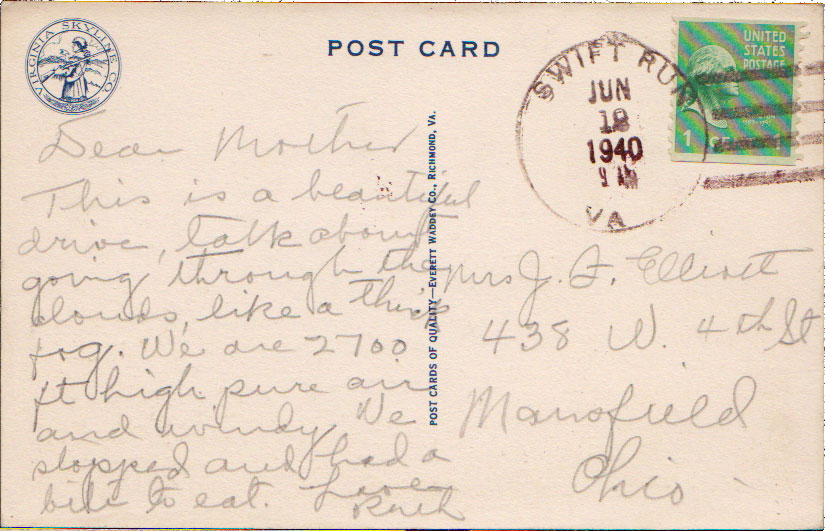 VIRGINIA SKYLINE CO.
POST CARD
SWIFT RUN
JUN
18
1940
9 AM
VA
UNITED
STATES
POSTAGE
1 CENT
Dear Mother
This is a beautiful
drive, talk about
going through the
clouds, like a thick
fog. We are 2700
ft high, pure air
and windy. We
stopped and had a
bite to eat. Love
Ruth
POST CARDS OF QUALITY—EVERETT WADDEY CO., RICHMOND, VA.
Mrs J. F. Elliott
438 W. 4th St
Mansfield
Ohio